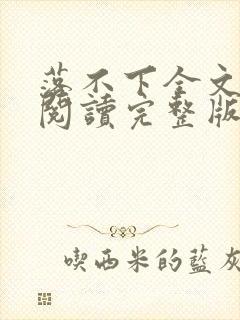 落不下全文
閱讀完整版
喫西米的藍灰